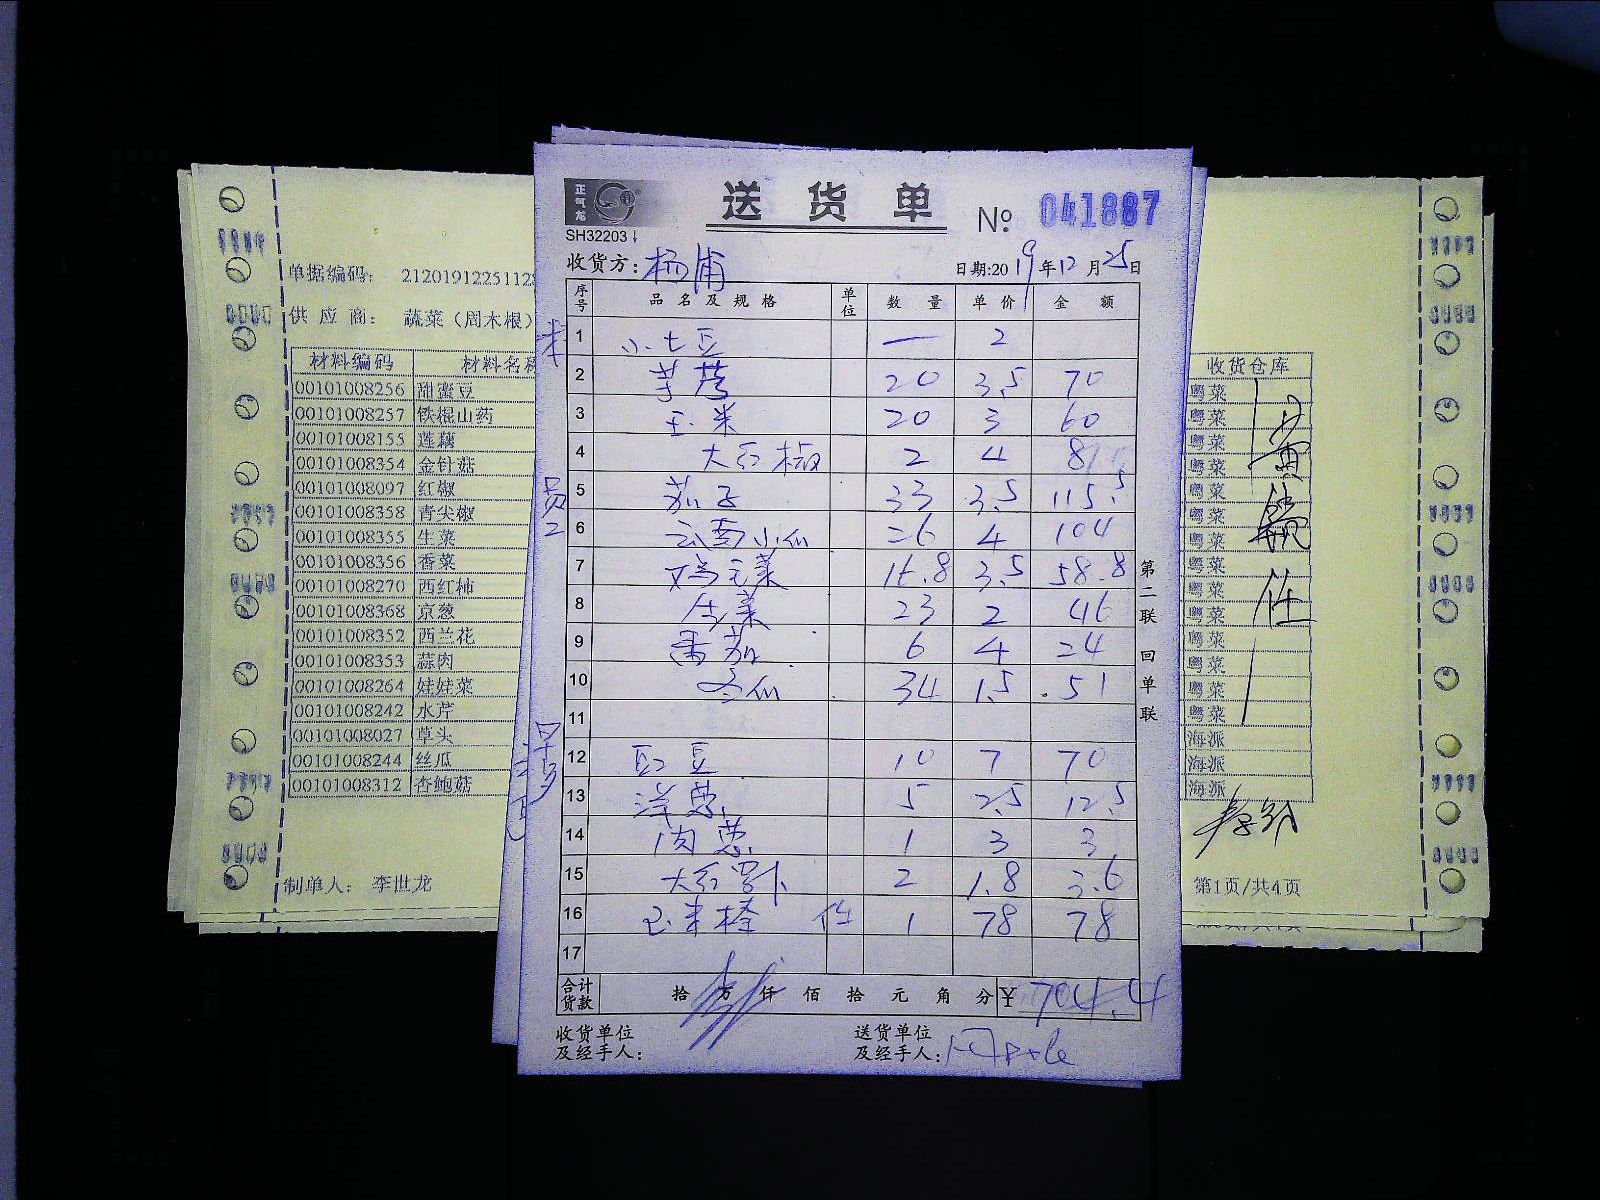 正气龙
送货单
SH32203
№ 041887
收货方: 杨浦
日期:2019年12月25日
序号 品名及规格 单位 数量 单价 金额
1 小土豆 一 2
2 茅茡 20 3.5 70
3 玉米 20 3 60
4 大红椒 2 4 8
5 茄子 33 3.5 115.5
6 云南小瓜 26 4 104
7 鸡毛菜 16.8 3.5 58.8
8 生菜 23 2 46
9 番茄 6 4 24
10 冬瓜 34 1.5 51
11
12 豇豆 10 7 70
13 洋葱 5 2.5 12.5
14 肉葱 1 3 3
15 大红萝卜 2 1.8 3.6
16 玉米棒 件 1 78 78
17
合计货款 拾 万 仟 佰 拾 元 角 分 ¥ 704.4
收货单位及经手人:
送货单位及经手人:
第二联 回单联
员工
单据编码: 2120191225112
供应商: 蔬菜(周木根)
材料编码 材料名称
00101008256 甜蜜豆
00101008257 铁棍山药
00101008155 莲藕
00101008354 金针菇
00101008097 红椒
00101008358 青尖椒
00101008355 生菜
00101008356 香菜
00101008270 西红柿
00101008368 京葱
00101008352 西兰花
00101008353 蒜肉
00101008264 娃娃菜
00101008242 水芹
00101008027 草头
00101008244 丝瓜
00101008312 杏鲍菇
制单人: 李世龙
收货仓库
粤菜
粤菜
粤菜
粤菜
粤菜
粤菜
粤菜
粤菜
粤菜
粤菜
粤菜
粤菜
粤菜
粤菜
海派
海派
海派
第1页/共4页